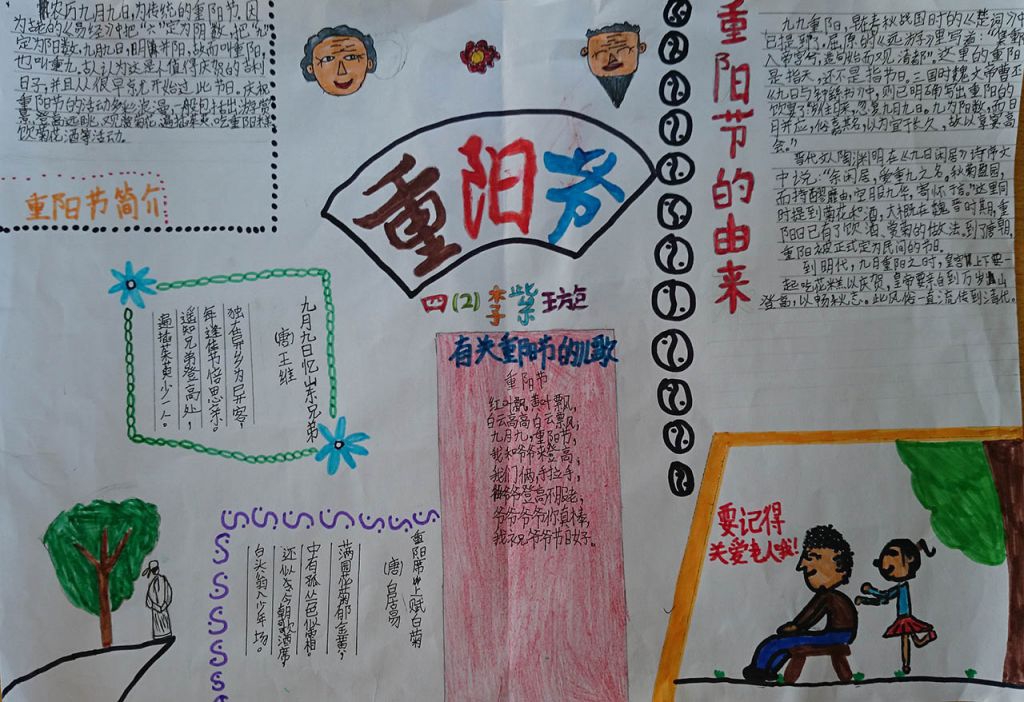 农历九月九日,为传统的重阳节,因
为《易经》中把“六”定为阴数,把“九”
定为阳数,九月九日,明阳并阳,故而叫重阳,
也叫重九。
日子,并且从很早就开始过此节日。庆祝
重阳节的活动多彩浪漫,一般包括出游赏
景、登高远眺、观赏菊花、遍插茱萸、吃重阳糕、
饮菊花酒等活动。
重阳节简介
重阳节
四(2)李紫玹
九月九日忆山东兄弟
(唐)王维
独在异乡为异客,
每逢佳节倍思亲。
遥知兄弟登高处,
遍插茱萸少一人。
有关重阳节的儿歌
重阳节
红叶飘,黄叶飘,
白云高高白云飘,
九月九,重阳节,
我和爷爷来登高,
我们俩,手拉手,
爷爷登高不服老,
爷爷爷爷你真棒,
我祝爷爷节日好。
重阳席上赋白菊
(唐)白居易
满园花菊郁金黄,
中有孤丛色似霜。
还似今朝歌酒席,
白头翁入少年场。
重阳节的由来
九九重阳,早在春秋战国时的《楚词》中
已提到。屈原的《远游》里写道:“集重阳
入帝宫兮,造旬始而观清都”。这里的重阳
是指天,还不是指节日。三国时魏文帝曹丕
《九日与钟繇书》中,则已明确写出重阳的
饮宴了:“岁往月来,忽复九月九日。九为阳数,而日
月并应,俗嘉其名,以为宜于长久,故以享宴高
会。”
晋代文人陶渊明在《九日闲居》诗序文
中说:“余闲居,爱重九之名。秋菊盈园,
而持醪靡由,空服九华,寄怀于言”。这里同
时提到菊花和酒。大概在魏晋时期,重
阳日已有了饮酒、赏菊的做法。到了唐朝,
重阳被正式定为民间的节日。
到明代,九月重阳之时,皇宫上下要一
起吃花糕以庆贺,皇帝要亲自到万岁山
登高,以畅秋志。此风俗一直流传到清代。
要记得
关爱老人哦!